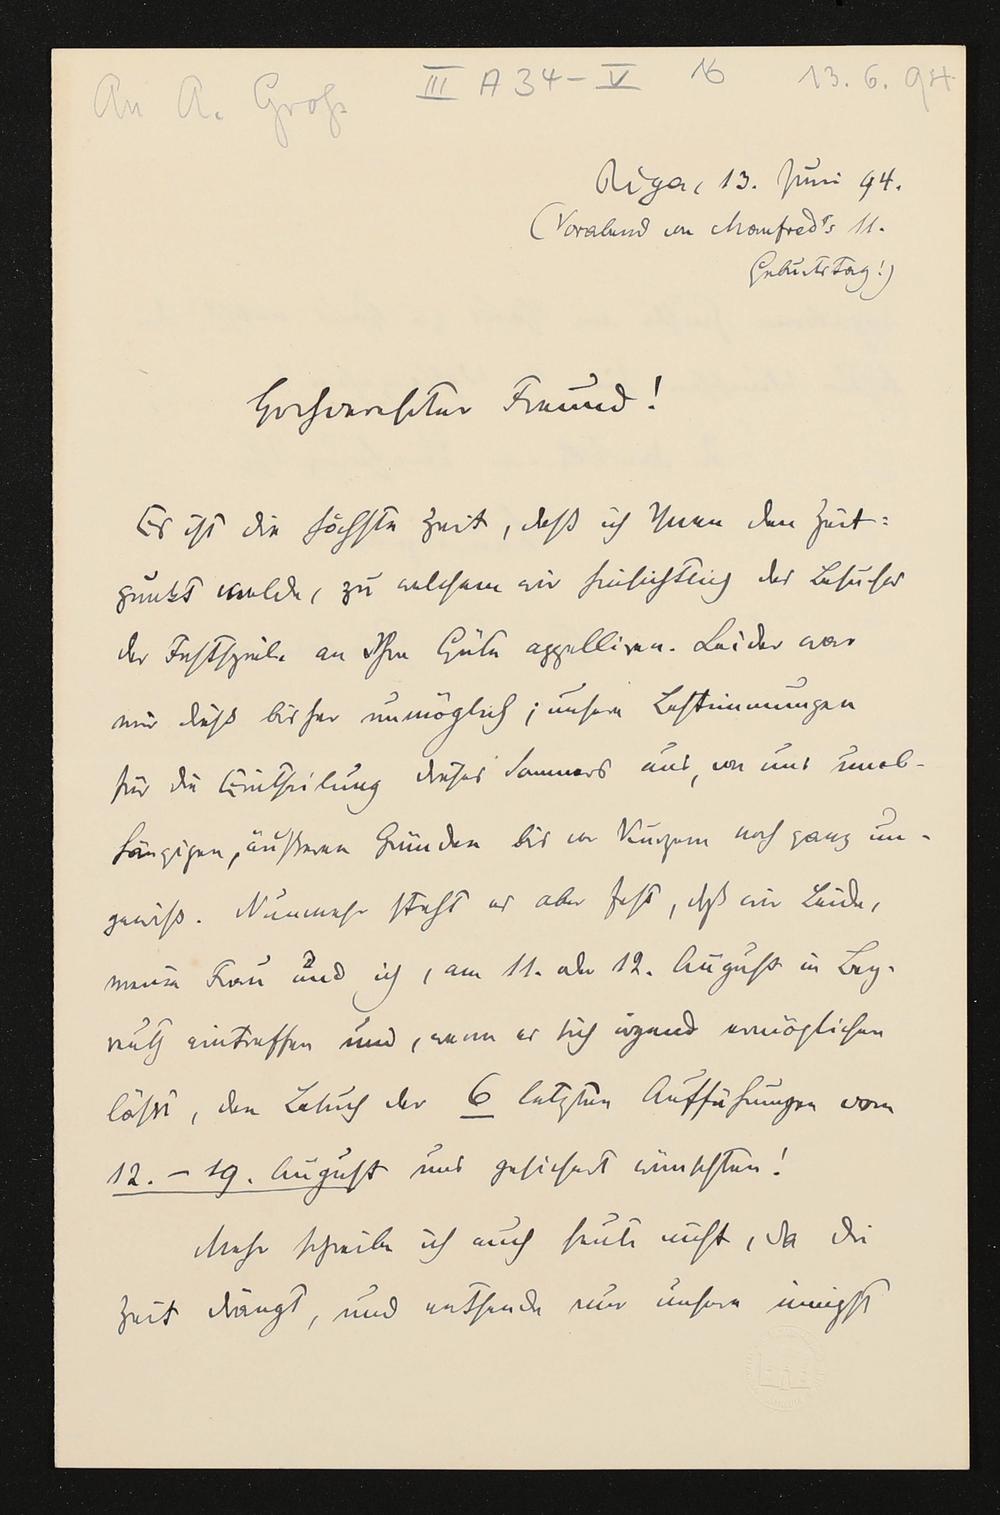 An A. Groß III A 34 – V 16 13.6.94
Riga, 13. Juni 94.
(Vorabend von Manfred's 11.
Geburtstag!)
Hochverehrter Freund!
Es ist die höchste Zeit, daß ich Ihnen den Zeit-
punkt melde, zu welchem wir hinsichtlich des Besuches
der Festspiele an Ihre Güte appelliren. Leider war
mir dieß bisher unmöglich; unsere Bestimmungen
für die Eintheilung dieses Sommers aus, von uns unab-
hängigen, äußeren Gründen bis vor Kurzem noch ganz un-
gewiß. Nunmehr steht es aber fest, daß wir Beide,
meine Frau und ich, am 11. oder 12. August in Bay-
reuth eintreffen und, wenn es sich irgend ermöglichen
läßt, den Besuch der 6 letzten Aufführungen vom
12. – 19. August uns gesichert wünschten!
Mehr schreibe ich auch heute nicht, da die
Zeit drängt, und entsende nur unsere innigst